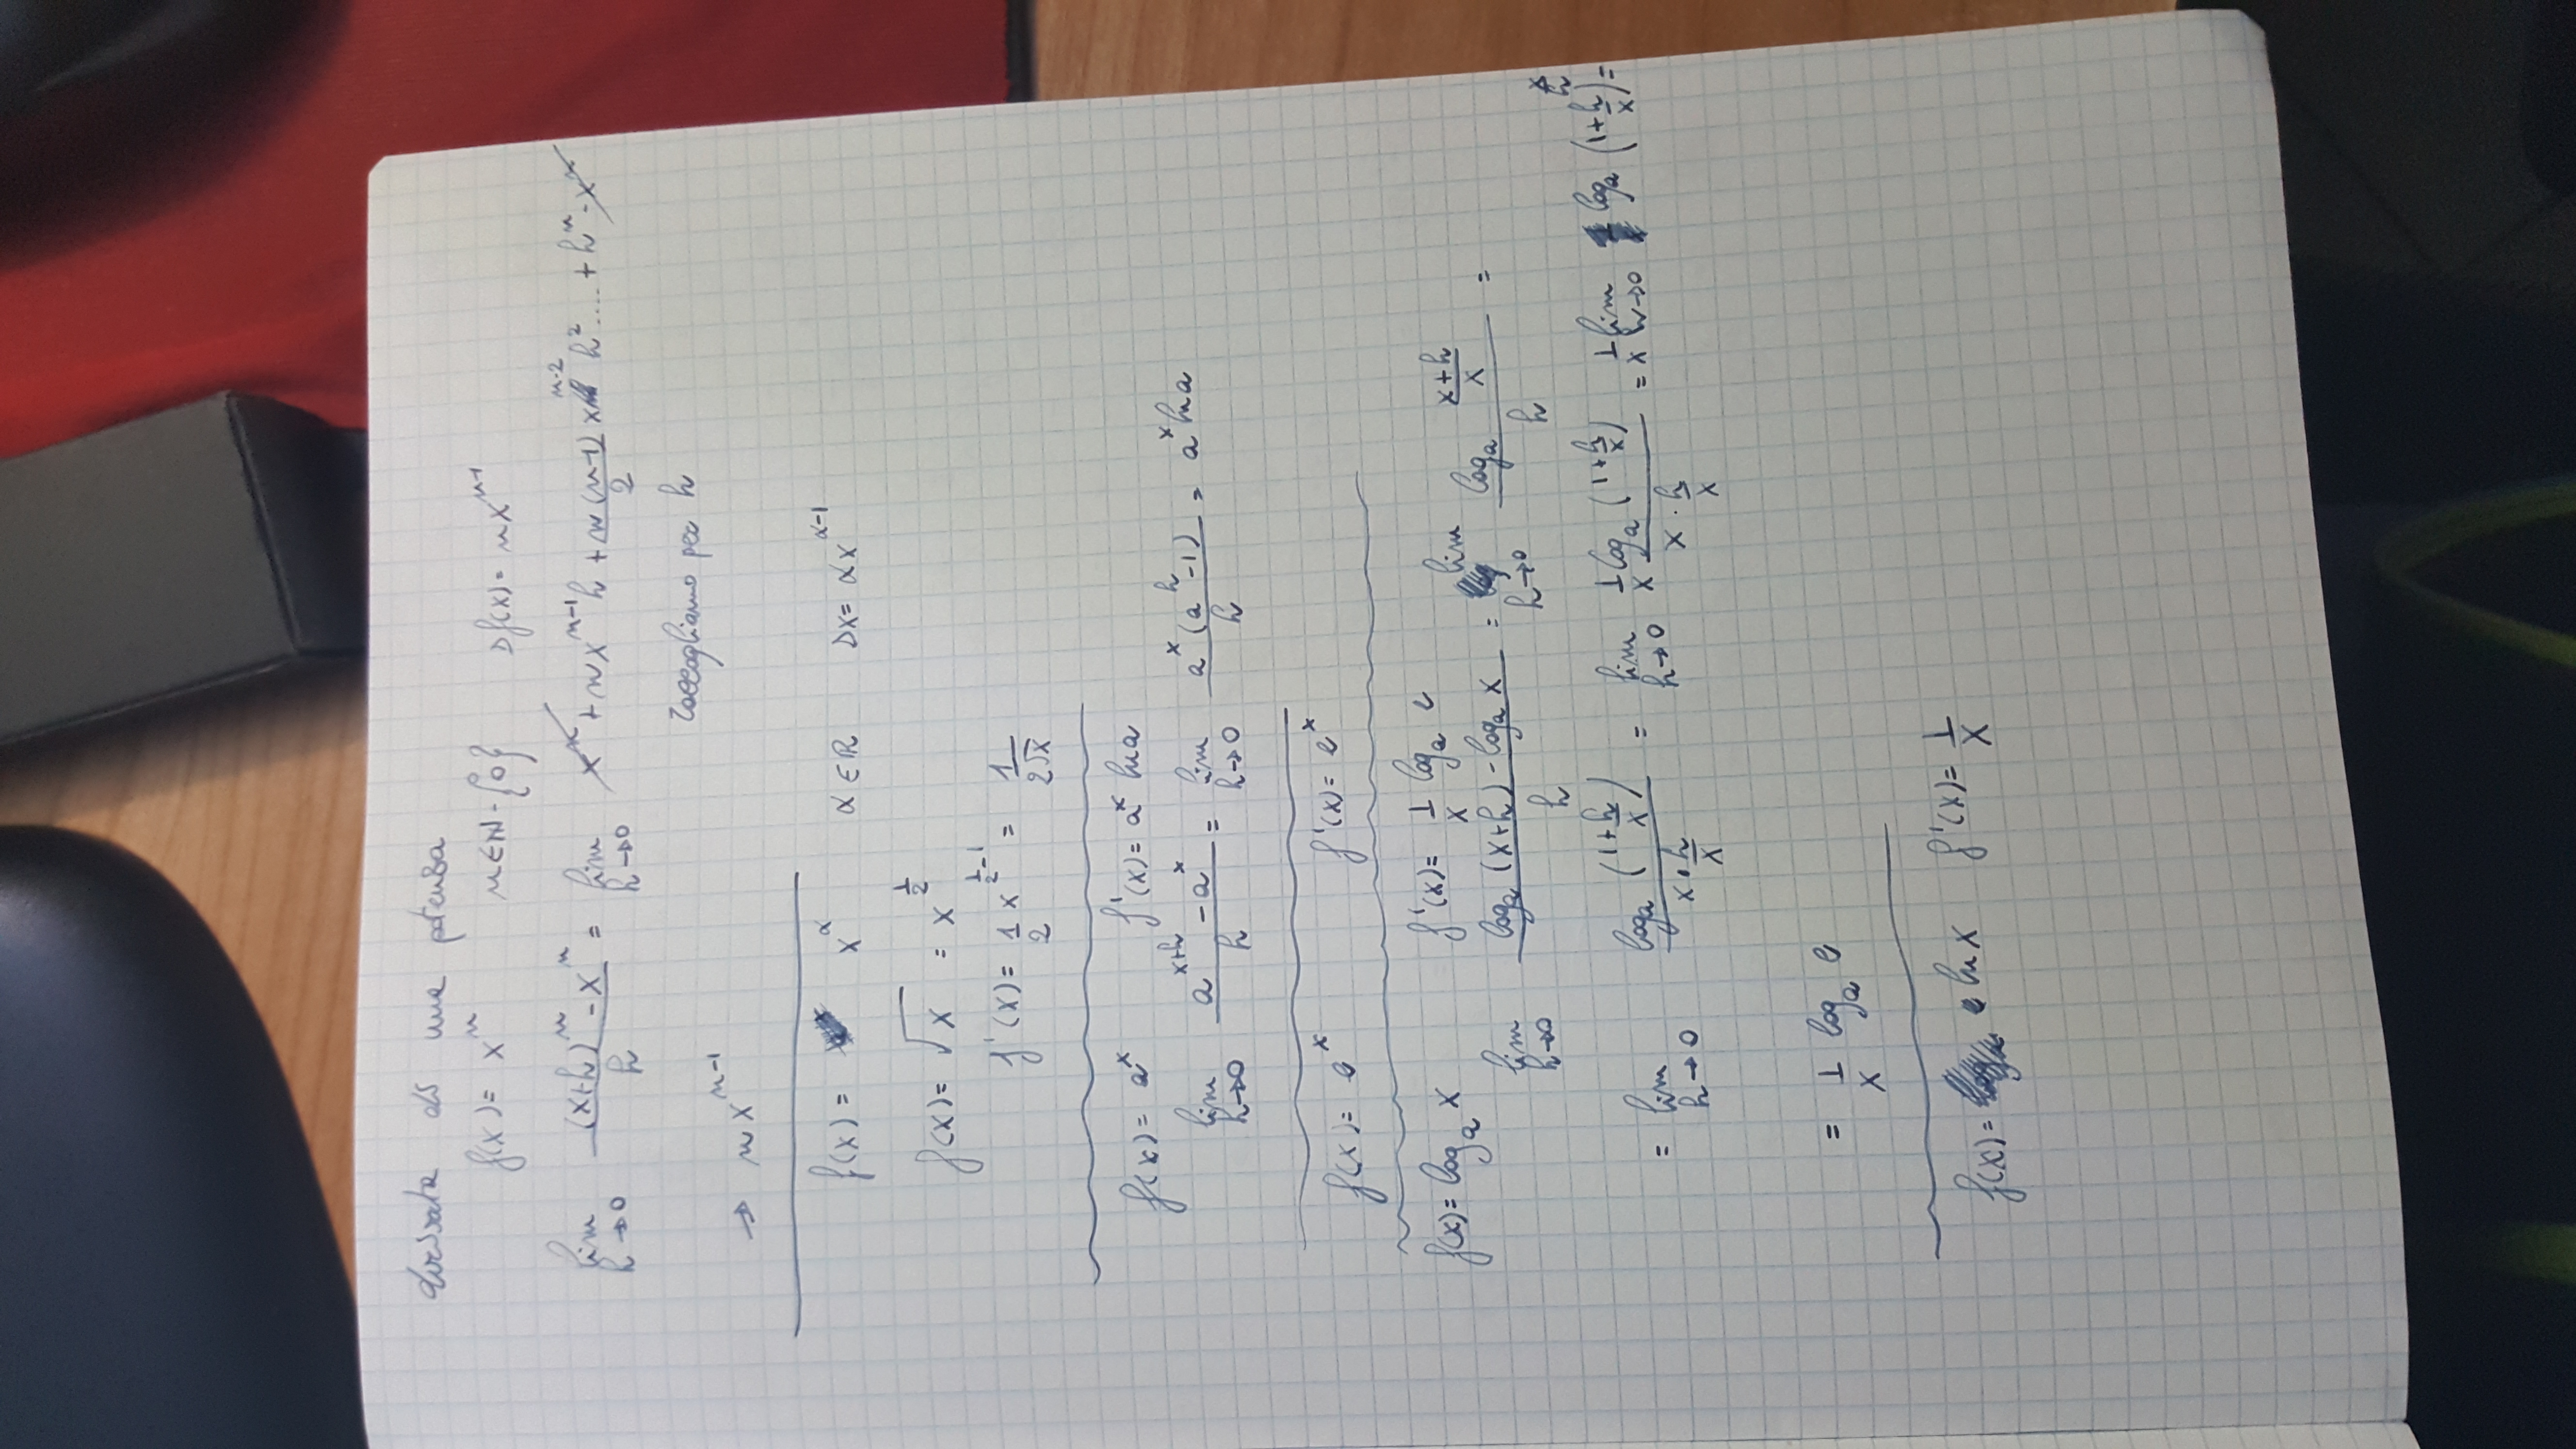 derivata di una potenza
f(x) = xⁿ   n ∈ N - {0}   Df(x) = nxⁿ⁻¹
lim h→0 ((x+h)ⁿ - xⁿ)/h = lim h→0 xⁿ + nxⁿ⁻¹h + n(n-1)/2 xⁿ⁻² h² .... + hⁿ - xⁿ
raccogliamo per h
→ nxⁿ⁻¹
f(x) = x^α   α ∈ R   Dx = αx^(α-1)
f(x) = √x = x^(1/2)
f'(x) = 1/2 x^(1/2 - 1) = 1/(2√x)
f(x) = aˣ   f'(x) = aˣ ln a
lim h→0 (a^(x+h) - aˣ)/h = lim h→0 aˣ(aʰ - 1)/h = aˣ ln a
f(x) = eˣ   f'(x) = eˣ
f(x) = logₐ x   f'(x) = 1/x logₐ e
lim h→0 (logₐ(x+h) - logₐ x)/h = lim h→0 (logₐ (x+h)/x)/h =
= lim h→0 logₐ(1 + h/x)/(x · h/x) = lim h→0 1/x logₐ(1 + h/x)/(x · h/x) = 1/x lim h→0 logₐ(1 + h/x)^(x/h) =
= 1/x logₐ e
f(x) = ln x   f'(x) = 1/x